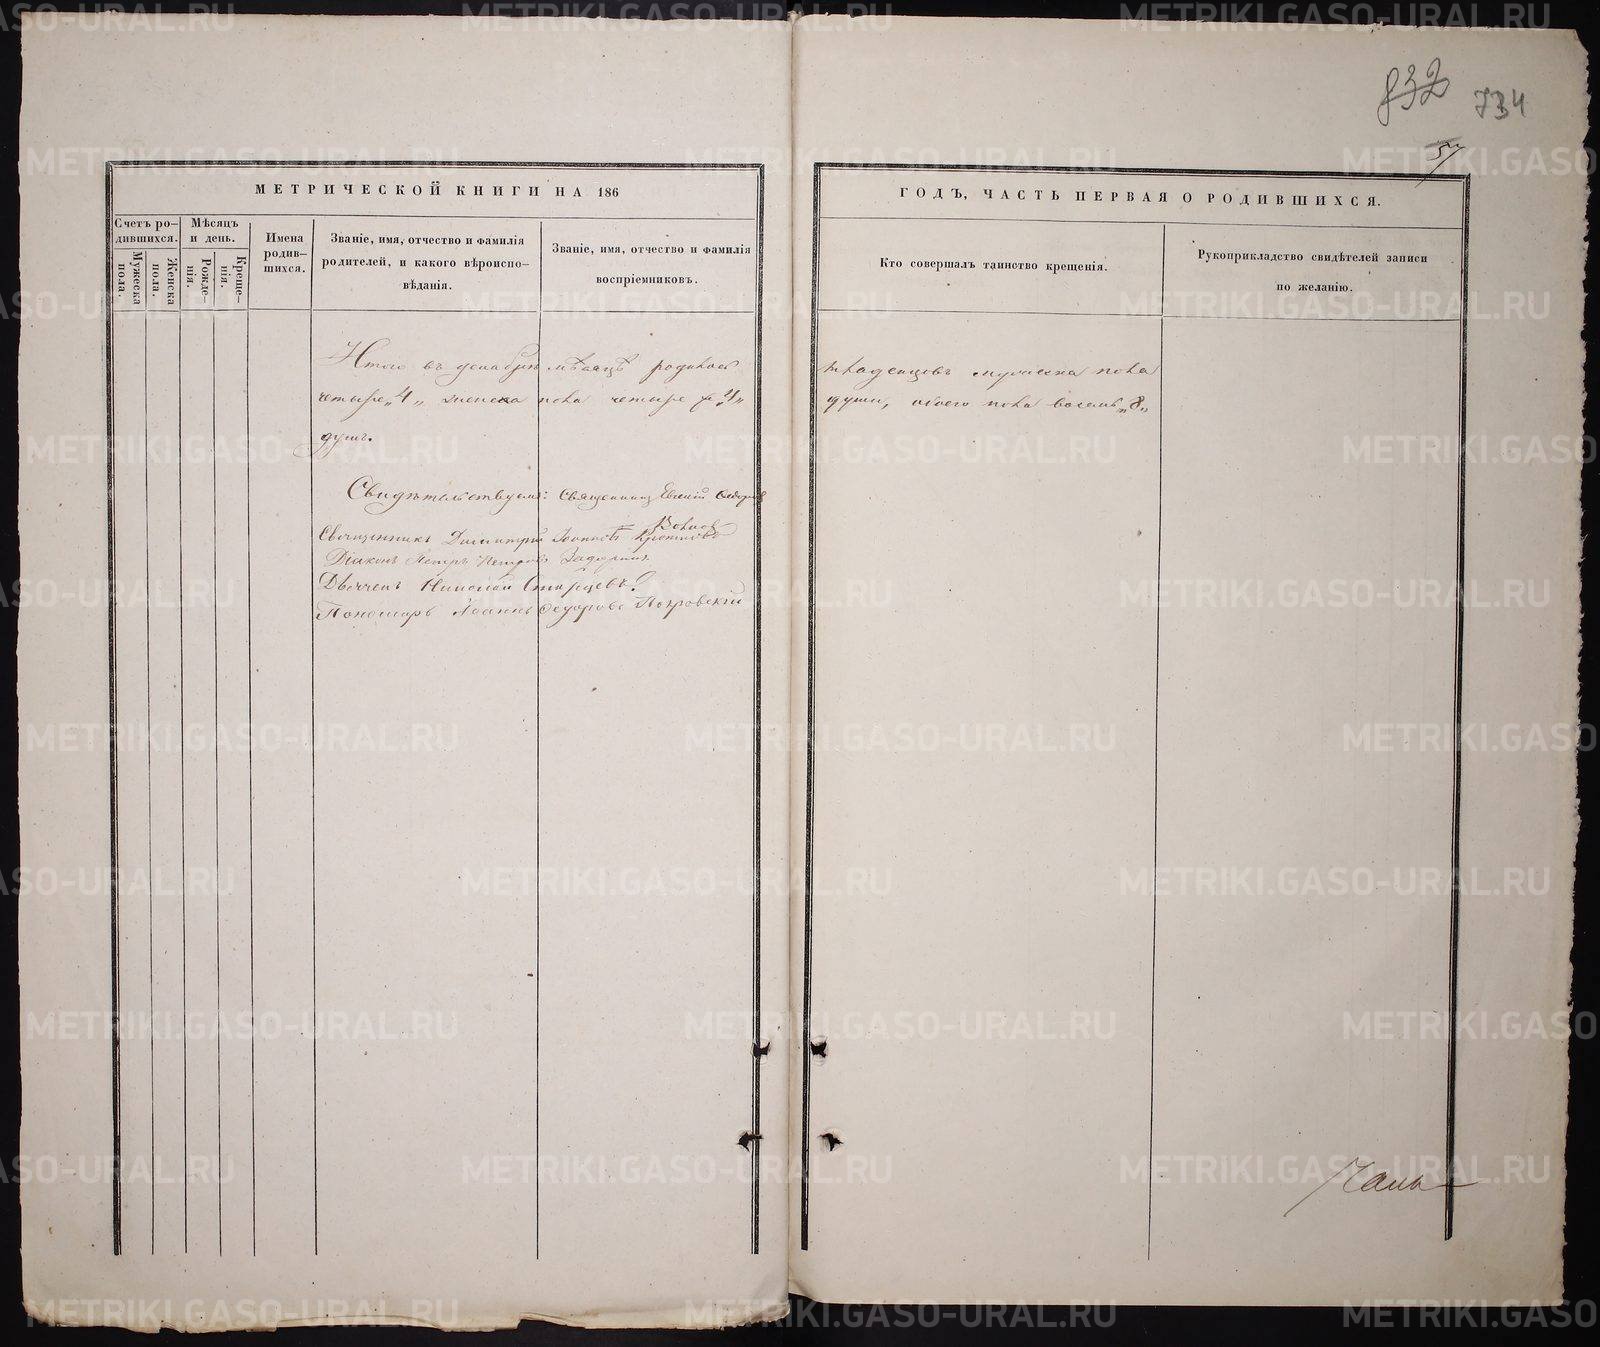 832 734
57
МЕТРИЧЕСКОЙ КНИГИ НА 186
ГОДЪ, ЧАСТЬ ПЕРВАЯ О РОДИВШИХСЯ.
Счетъ ро-
дившихся.
Мужеска
пола.
Женска
пола.
Мѣсяцъ
и день.
Рожде-
нія.
Креще-
нія.
Имена
родив-
шихся.
Званіе, имя, отчество и фамилія
родителей, и какого вѣроиспо-
вѣданія.
Званіе, имя, отчество и фамилія
воспріемниковъ.
Кто совершалъ таинство крещенія.
Рукоприкладство свидѣтелей записи
по желанію.
Итого въ декабрѣ мѣсяцѣ родилось
младенцовъ мужеска пола
четыре „4„ женска пола четыре „4„
души, обоего пола восемь „8„
душъ.
Свидѣтельствуемъ: Священникъ Евгеній
Священникъ Димитрій Іоанновъ
Діаконъ Петръ Петровъ
Дьячекъ Николай Старцевъ
Пономарь Іоаннъ Ѳедоровъ Покровскій
METRIKI.GASO-URAL.RU